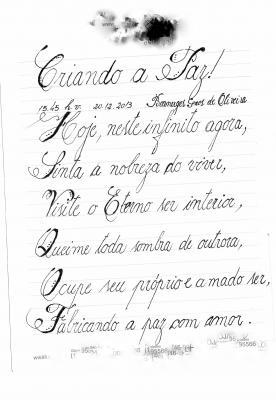 Criando a Paz!
15.45 h.v. 20.12.2013 Domingos Ervos de Oliveira
Hoje, neste infinito agora,
Sinta a nobreza do viver,
Visite o Eterno ser interior,
Queime toda sombra de outrora,
Ocupe seu próprio e amado ser,
Fabricando a paz com amor.